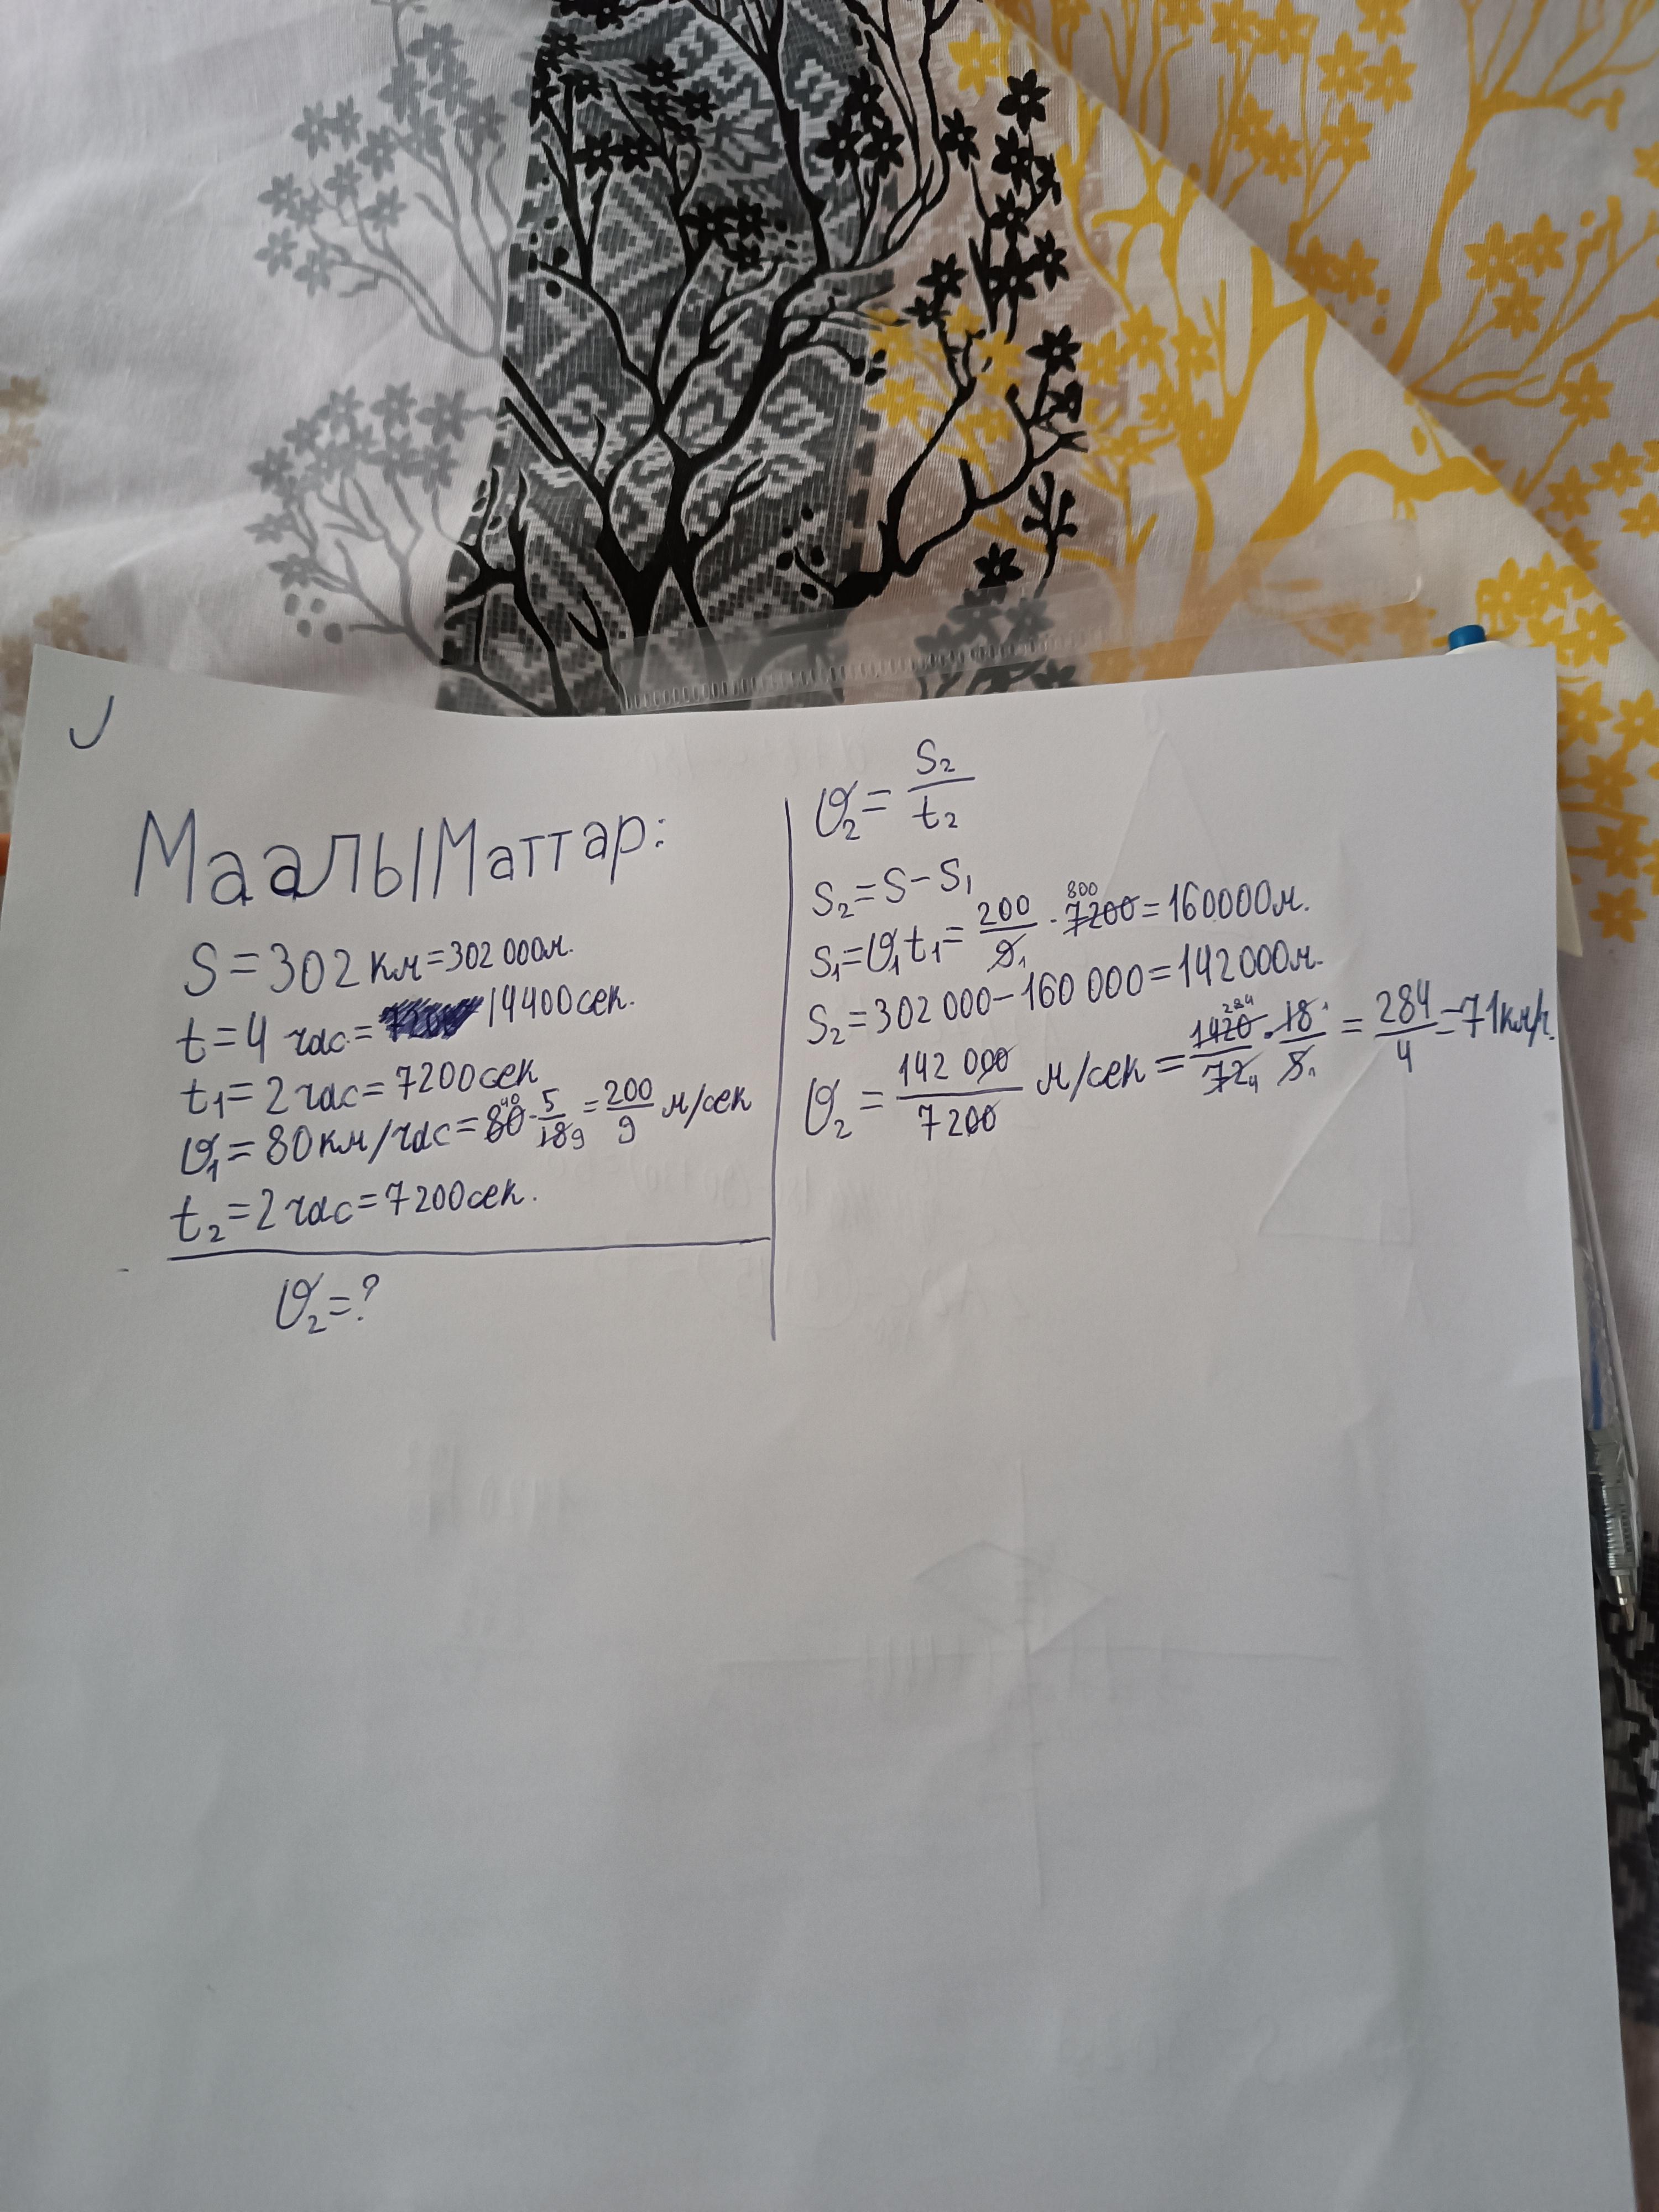 Маалыматтар:
S = 302 км = 302 000м.
t = 4 час = 14400сек.
t₁ = 2 час = 7200сек
υ₁ = 80 км/час = 80 40 · 5/18 9 = 200/9 м/сек
t₂ = 2 час = 7200сек.
υ₂ = ?
υ₂ = S₂/t₂
S₂ = S − S₁
S₁ = υ₁t₁ = 200/9 1 · 7200 800 = 160000м.
S₂ = 302 000 − 160 000 = 142000м.
υ₂ = 142 000/7200 м/сек = 1420 284/72 4 · 18 1/5 1 = 284/4 = 71км/ч.